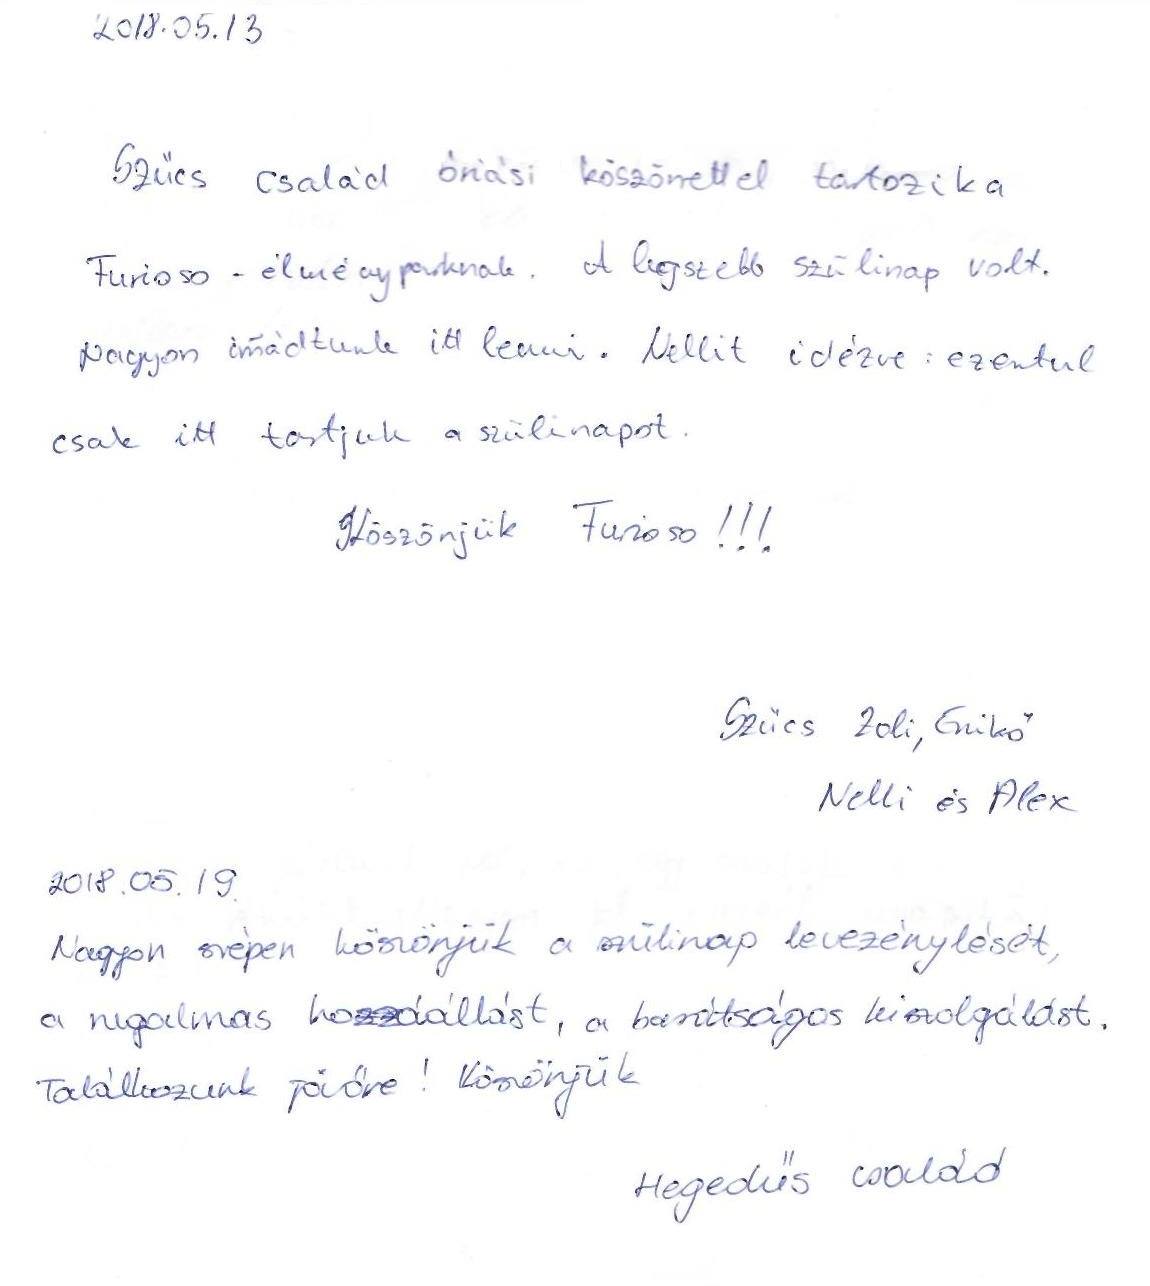 2018.05.13
Szűcs család óriási köszönettel tartozik a
Furioso - élményparknak. A legszebb szülinap volt.
Nagyon imádtunk itt lenni. Nellit idézve: ezentul
csak itt tartjuk a szülinapot.
Köszönjük Furioso!!!
Szücs Zoli, Enikő
Nelli és Alex
2018.05.19.
Nagyon szépen köszönjük a szülinap levezénylését,
a rugalmas hozzáállást, a barátságos kiszolgálást.
Találkozunk jövőre! Köszönjük
Hegedűs család